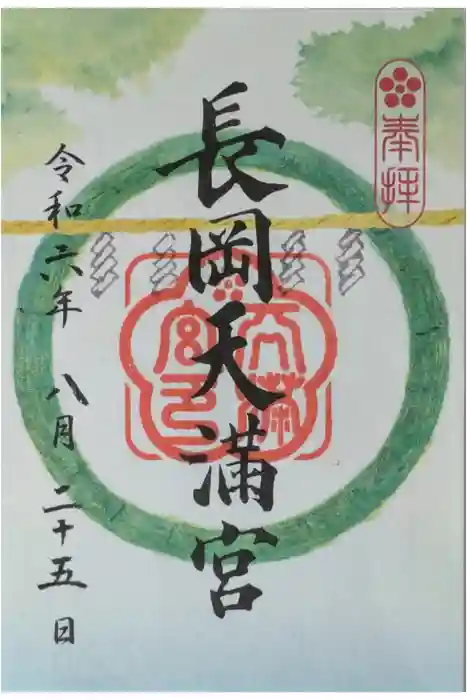 奉拝
長岡天満宮
天満宮印
令和六年 八月 二十五日